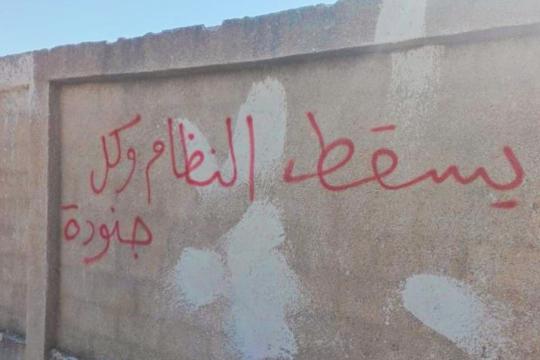 يسقط النظام وكل
جنودة